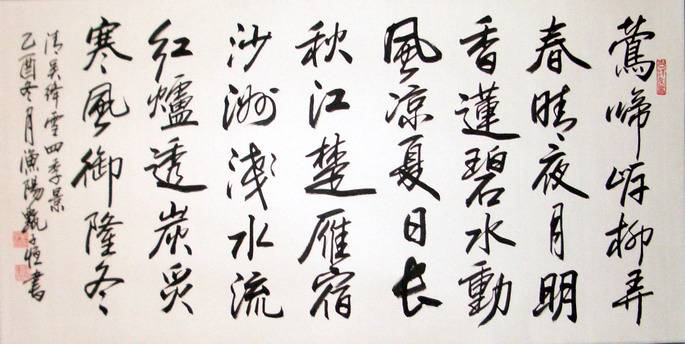 鶯啼岸柳弄
春晴夜月明
香蓮碧水動
風涼夏日長
秋江楚雁宿
沙洲淺水流
紅爐透炭炙
寒風御隆冬
清吳絳雪四季景
乙酉冬月漁陽甄子恒書